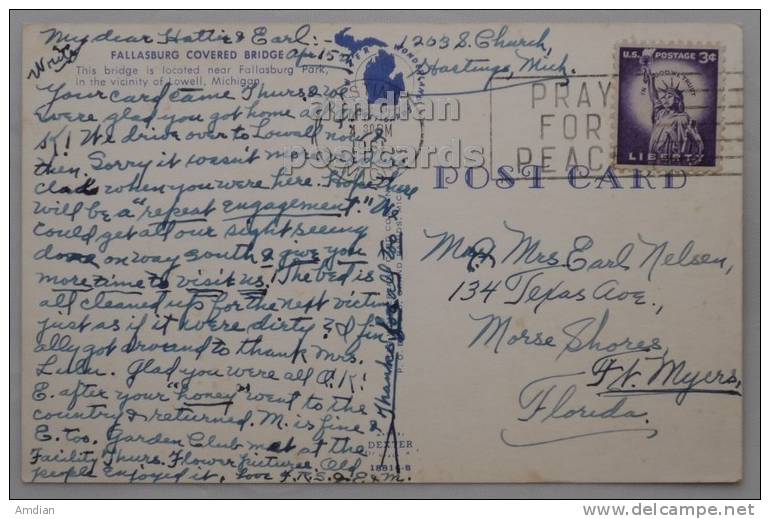 My dear Hattie & Earl:-
1203 S. Church,
Apr 15
Hastings, Mich.
Write
FALLASBURG COVERED BRIDGE
This bridge is located near Fallasburg Park,
in the vicinity of Lowell, Michigan.
WATER WONDERLAND
Your card came Thurs. & we
were glad you got home all O.
K! We drive over to Lowell now &
then. Sorry it wasn't more
clad when you were here. Hope there
will be a "repeat engagement." We
could get all our sightseeing
done on way south & give you
more time to visit us! The bed is
all cleaned up for the next victim
just as if it were dirty & I fin
ally got around to thank Mrs.
Lulu. Glad you were all O.K!
E. after your "honey" went to the
country & returned. M. is fine &
E. too. Garden Club met at the
Facility Thurs. Flower pictures. Old
people enjoyed it. Love
Thanks for all too
PRAY
FOR
PEACE
30 PM
U.S. POSTAGE 3¢
IN GOD WE TRUST
LIBERTY
POST CARD
Mr. & Mrs. Earl Nelsen,
134 Texas Ave.,
Morse Shores,
Ft. Myers,
Florida.
DEXTER
18816-B
amdian
antique
postcards
© Amdian
www.delcampe.net